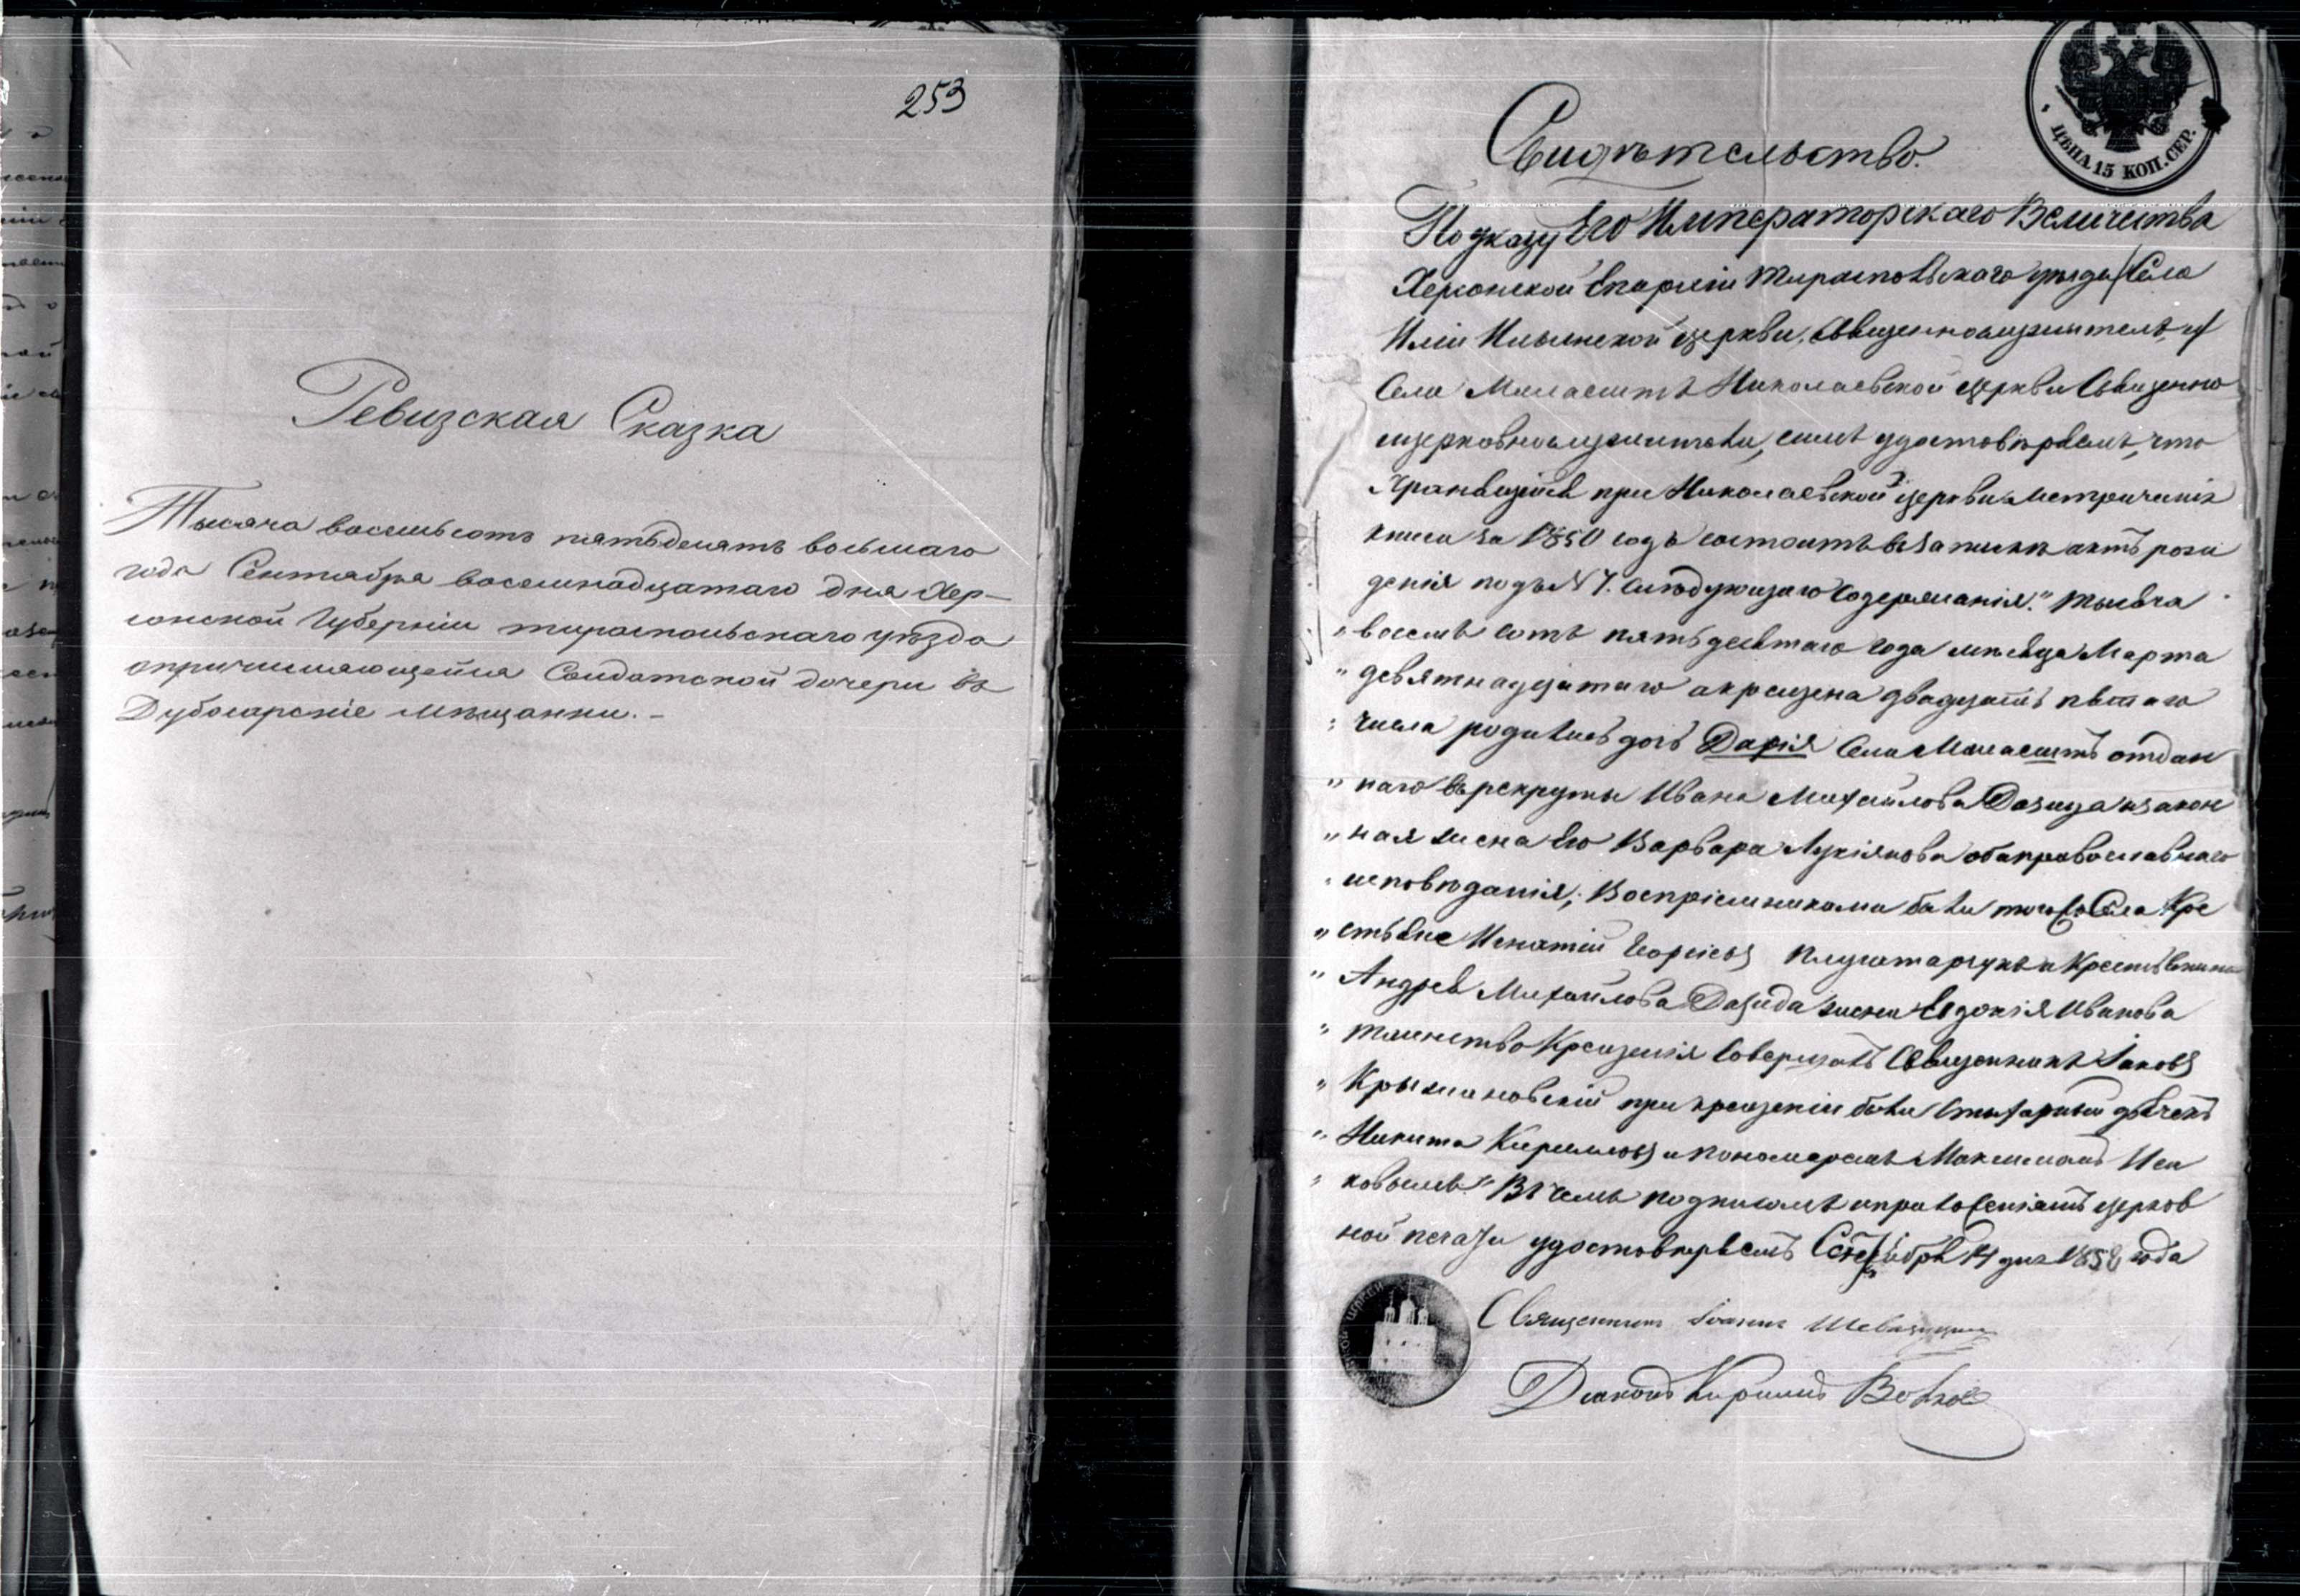 253
Ревизская Сказка
Тысяча восемьсотъ пятьдесятъ восьмаго
года Сентября восемнадцатаго дня Хер-
сонской Губерніи тираспольскаго уѣзда
опричисляющейся Солдатской дочери въ
Дубосарскіе мѣщанки.-
ЦѢНА 15 КОП. СЕР.
Свидѣтельство.
По указу Его Императорскаго Величества
Херсонской Епархіи Тираспольскаго уѣзда Села
Иліи Ильинской церкви, Священнослужитель, и
Села Маласштъ Николаевской церкви Священно
церковнослужители, симъ удостовѣряемъ, что
Хранящейся при Николаевской церкви Метрическія
книги за 1850 годъ состоитъ въ записки актъ рож
денія подъ № 7. слѣдующаго содержанія: "Тысяча
" восемь сотъ пятьдесятаго года мѣсяца Марта
" девятнадцатаго а крещена двадцать пятаго
" числа родилась дочь Дарія Села отдан
" наго въ рекруты Ивана Михайлова и закон
" ная жена Его Варвара Лукіянова оба православнаго
" исповѣданія; Воспріемниками были тогоже Села Кре
" стьяне Игнатій Георгіевъ и Крестьянина
" Андрея Михайлова жена Евдокія Иванова
" таинство Крещенія Совершалъ Священникъ Іаковъ
" Крыжановскій при крещеніи были Стихарный дьячекъ
" Никита Кирилловъ и пономаремъ Максимомъ Иса
" ковымъ." Въ чемъ подписомъ и приложеніемъ церков
ной печати удостовѣряемъ Сентября 14 дня 1858 года
Священникъ Іоаннъ
Дьяконъ Кириллъ Волков